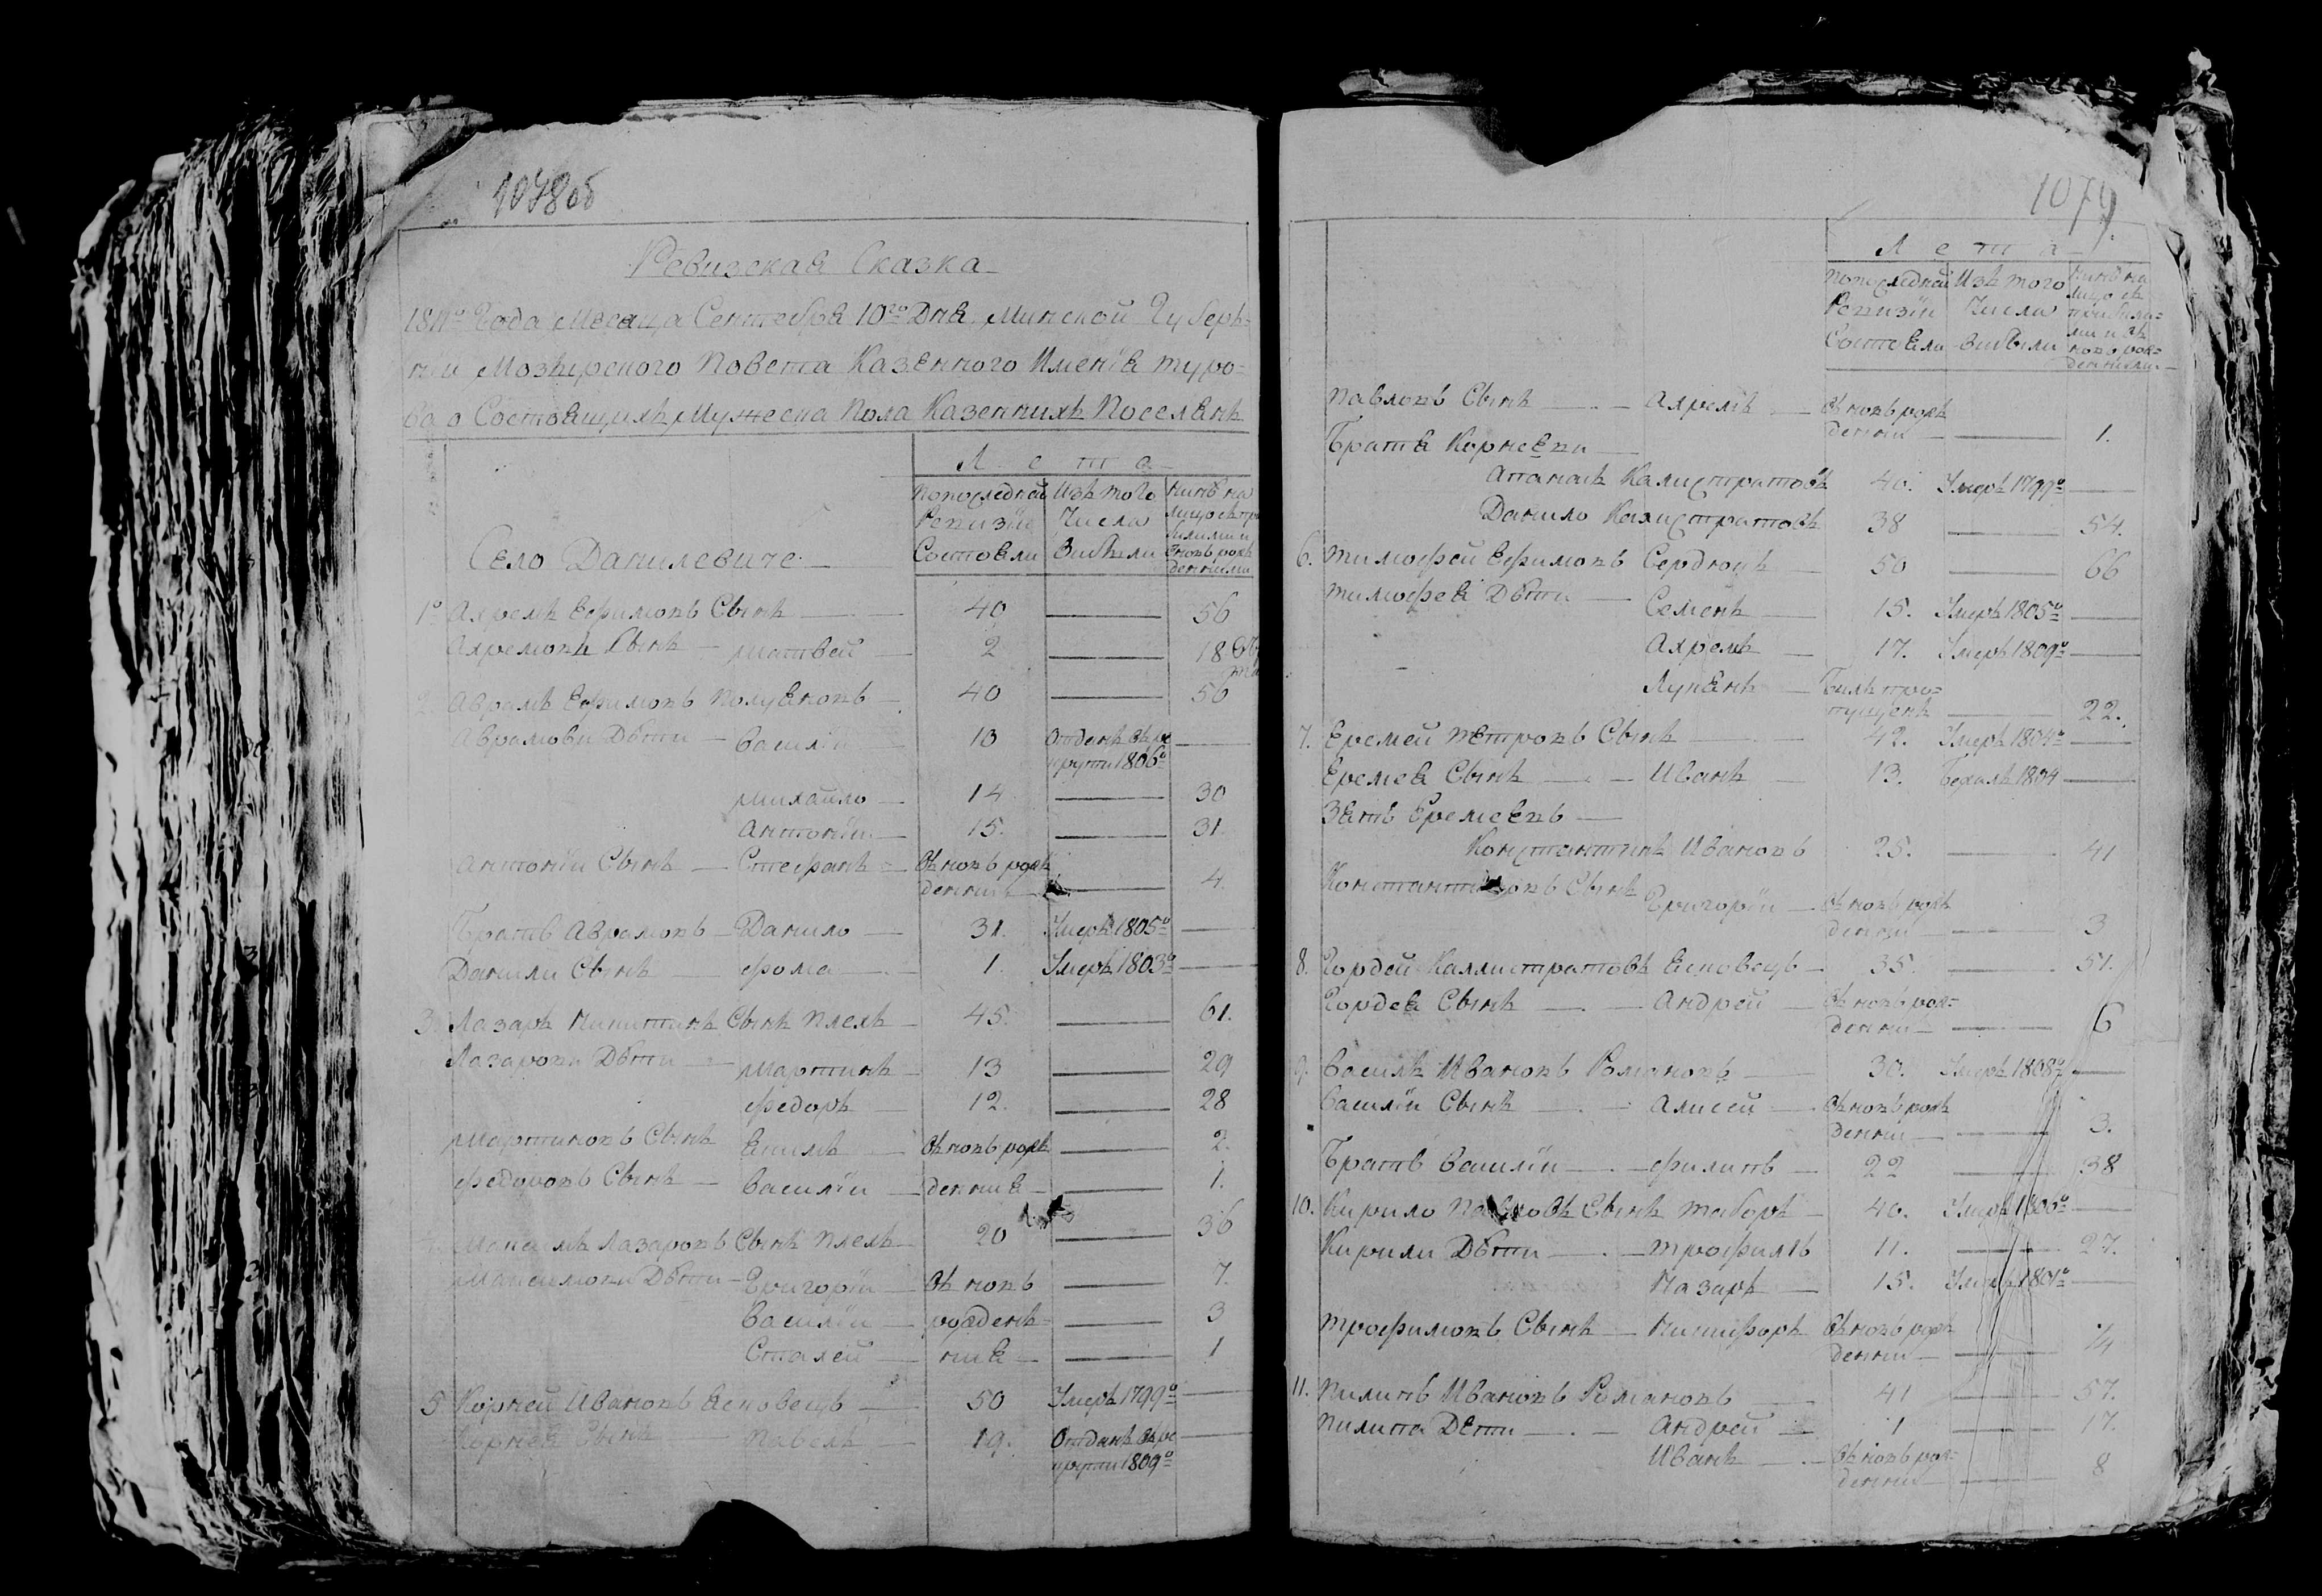 1078об
Ревизская Сказка
1811го Года Месяца Сентября 10го Дня Минской Губер=
нии Мозырского Повета Казенного Имения туро=
ва о Состоящихъ Мужеска Пола Казеннихъ Поселянъ
Лета
По последней Ревизіи Состояли
Изъ того Числа Вибыли
Село Данилевиче
1е Ахремъ Ефимовъ Сынъ 40 — 56
Ахремовъ Сынъ Матвей 2 — 18
Аврамъ Ефимовъ Полуяновъ 40 — 56
Аврамови Дѣти Василій 18 Отданъ въ ре
крути 1806го
Михайло 14 — 30
Антоній 15. — 31.
Антонія Сынъ Стефанъ Въ новъ рож
денни — 4.
Братъ Аврамовъ Данило 31. Умеръ 1805го —
Данили Сынъ Фома 1. Умеръ 1803го —
3. Лазаръ Никитинъ Сынъ Плехъ 45. — 61.
Лазарови Дѣти Мартинъ 13 — 29
Федоръ 12. — 28
Мартиновъ Сынъ Якимъ Въ новъ рож — 2.
Федоровъ Сынъ Василій денния — 1.
Максимъ Лазаровъ Сынъ Плехъ 20 — 36
Максимови Дѣти Григорій Въ новъ — 7.
Василій рожден= — 3
ния — 1
5 Корней Ивановъ Ясковецъ 50 Умеръ 1799го —
Корнея Сынъ Павелъ 19. Отданъ въ ре
крути 1809го —
1079
Лета
По последней Ревизіи Состояли
Изъ того Числа Вибыли
Павловъ Сынъ Ахремъ Въ новъ рож
денни — 1.
Братя Корнеяви
Апанасъ Калистратовъ 40. Умеръ 1799го —
Данило Калистратовъ 38 — 54.
6. Тимофей Ефимовъ Сердюкъ 50 — 66
Тимофея Дѣти Семенъ 15. Умеръ 1805го —
Ахремъ 17. Умеръ 1809го —
Лукянъ Билъ про=
пущенъ — 22.
7. Еремей Петровъ Сынъ 42. Умеръ 1804го —
Еремея Сынъ Иванъ 13. Бежалъ 1804 —
Зять Еремеявъ
Константинъ Ивановъ 25. — 41
Константиновъ Сынъ Григорій Въ новъ рож
денни — 3
8. Гордей Каллистратовъ Ясковецъ 35. — 51.
Гордея Сынъ Андрей Въ новъ рож=
денни — 6
9. Василъ Ивановъ Романовъ 30. Умеръ 1808го —
Василія Сынъ Алисей Въ новъ рож
денни — 3.
Братъ Василія Филипъ 22 — 38
10. Кирило Павловъ Сынъ Таборъ 40. Умеръ 1806го —
Кирили Дѣти Трофимъ 11. — 27.
Назаръ 15. Умеръ 1801го —
Трофимовъ Сынъ Никифоръ Въ новъ рож
денни —
11. Пилипъ Ивановъ Романовъ 41 — 57.
Пилипа Дети Андрей 1 — 17.
Иванъ Въ новъ рож=
денни — 8